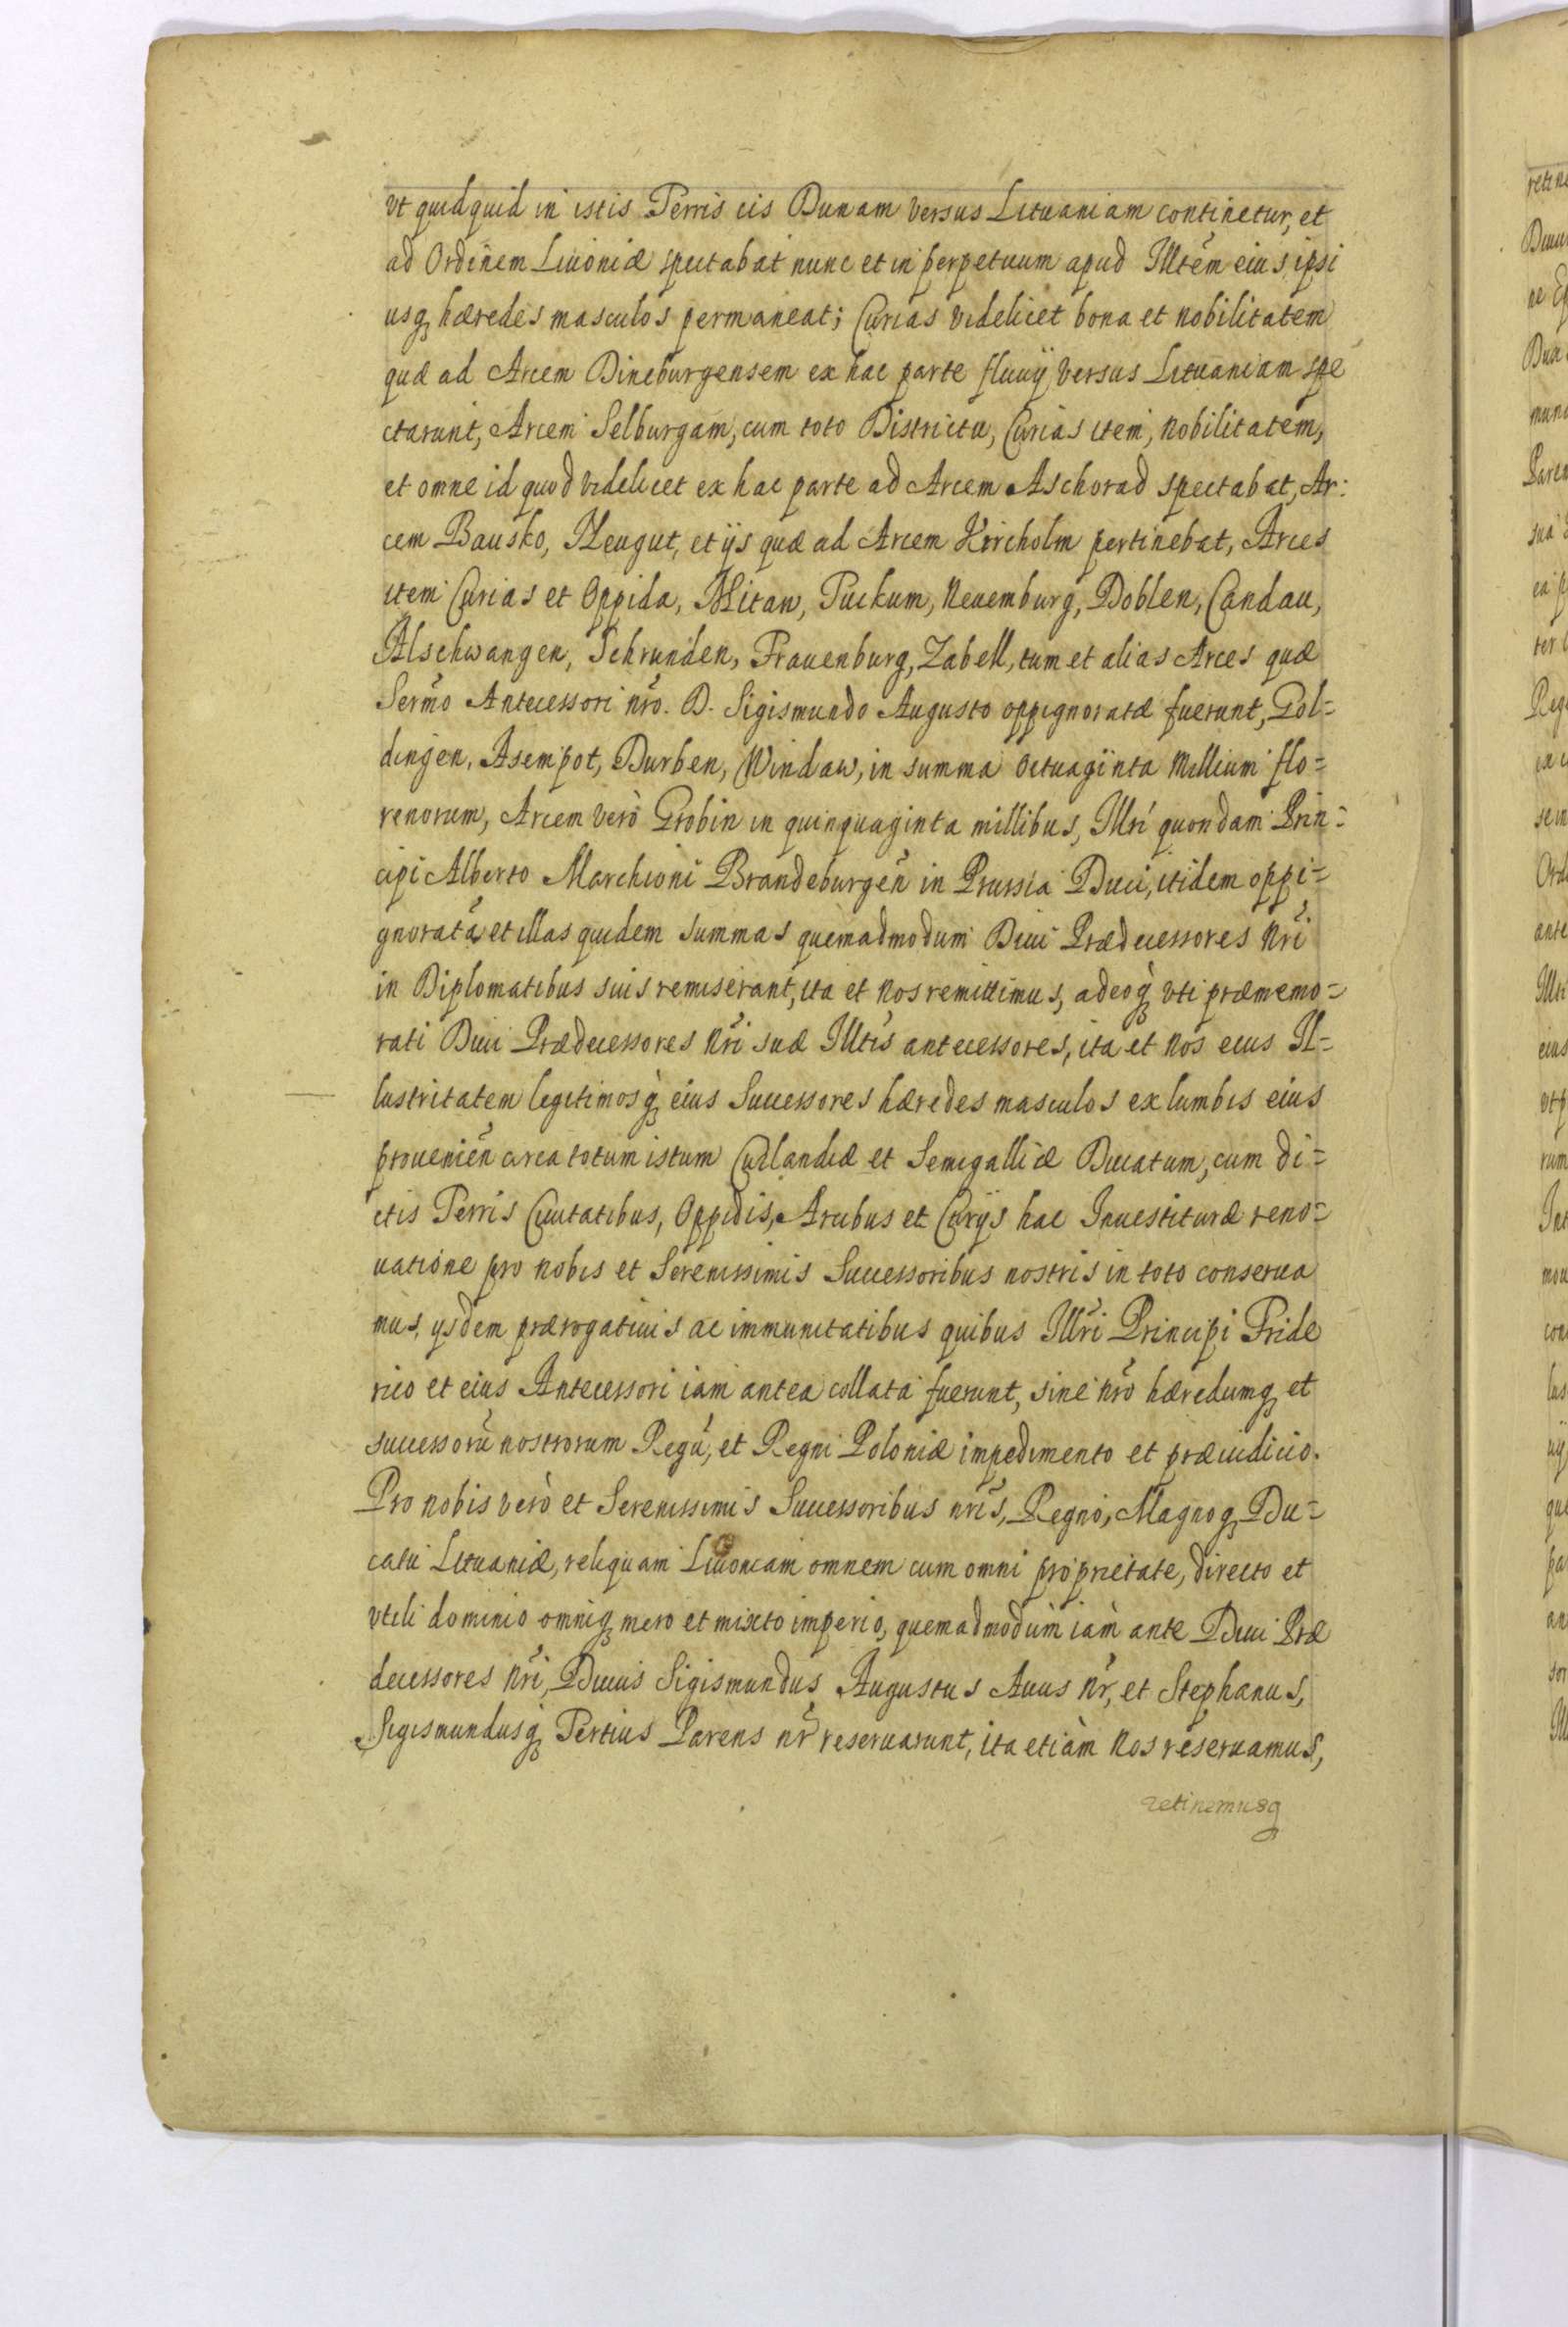 vt quidquid in istis Terris cis Dunam versus Lituaniam continetur, et
ad Ordinem Liuoniæ spectabat nunc et in perpetuum apud Illtem̃ eius ipsi
usq hæredes masculos permaneat; Curias videlicet bona et nobilitatem
quæ ad Arcem Dineburgensem ex hac parte fluuij versus Lituaniam spe
ctarunt, Arcem Selburgam, cum toto Districtu, Curias item, nobilitatem,
et omne id quod videlicet ex hac parte ad Arcem Aschorad spectabat, Ar:
cem Bausko, Neugut, et ijs quæ ad Arcem Kircholm pertinebat, Arces
item Curias et Oppida, Mitaw, Tuckum, Neuemburg, Doblen, Candau,
Alschwangen, Schrunden, Frauenburg, Zabell, tum et alias Arces quæ
Serm̃o Antecessori nr̃o. D. Sigismundo Augusto oppignoratæ fuerunt, Gol=
dingen, Asempot, Durben, Windaw, in summa octuaginta Millium flo=
renorum, Arcem verò Grobin in quinquaginta millibus, Illri quondam Prin=
cipi Alberto Marchioni Brandeburgeñ in Prussia Duci, itidem oppi=
gnoratã et illas quidem summas quemadmodum Diui Prædecessores Nr̃i
in Diplomatibus suis remiserant, ita et nos remittimus, adeoq̀ vti præmemo=
rati Diui Prædecessores Nr̃i suæ Illtis̃ antecessores, ita et nos eius Il=
lustritatem legitimosq̀ eius Successores hæredes masculos ex lumbis eius
prouenieñ circa totum istum Curlandiæ et Semigalliæ Ducatum, cum di=
ctis Terris Ciuitatibus, Oppidis, Arcibus et Curijs hac Inuestituræ reno=
uatione pro nobis et Serenissimis Successoribus nostris in toto conserua
mus, ijsdem prærogatiuis ac immunitatibus quibus Illr̃i Principi Fride
rico et eius Antecessori iam antea collata fuerunt, sine nr̃o hæredumq et
successorũ nostrorum Regũ, et Regni Poloniæ impedimento et præiudicio.
Pro nobis verò et Serenissimis Successoribus nr̃is, Regno, Magnoq Du=
catu Lituaniæ, reliquam Liuoniam omnem cum omni proprietate, directo et
vtili dominio omniq mero et mixto imperio, quemadmodùm iàm ante Diui Præ
decessores Nr̃i, Diuus Sigismundus Augustus Auus Nr̃, et Stephanus,
Sigismundusq Tertius Parens nr̃ reseruarunt, ita etiàm nos reseruamus,
retinemusq